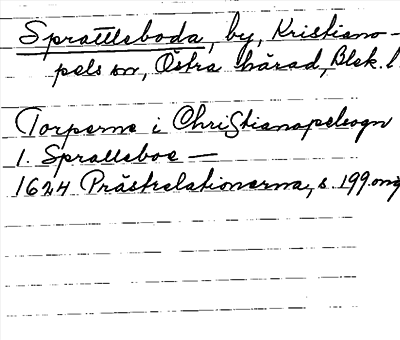 Sprattleboda, by, Kristiano-
pels sn, Östra härad, Blek. l
Torperne i Christianapelsogn
1. Spratleboe —
1624 Prästrelationerna, s. 199. orig